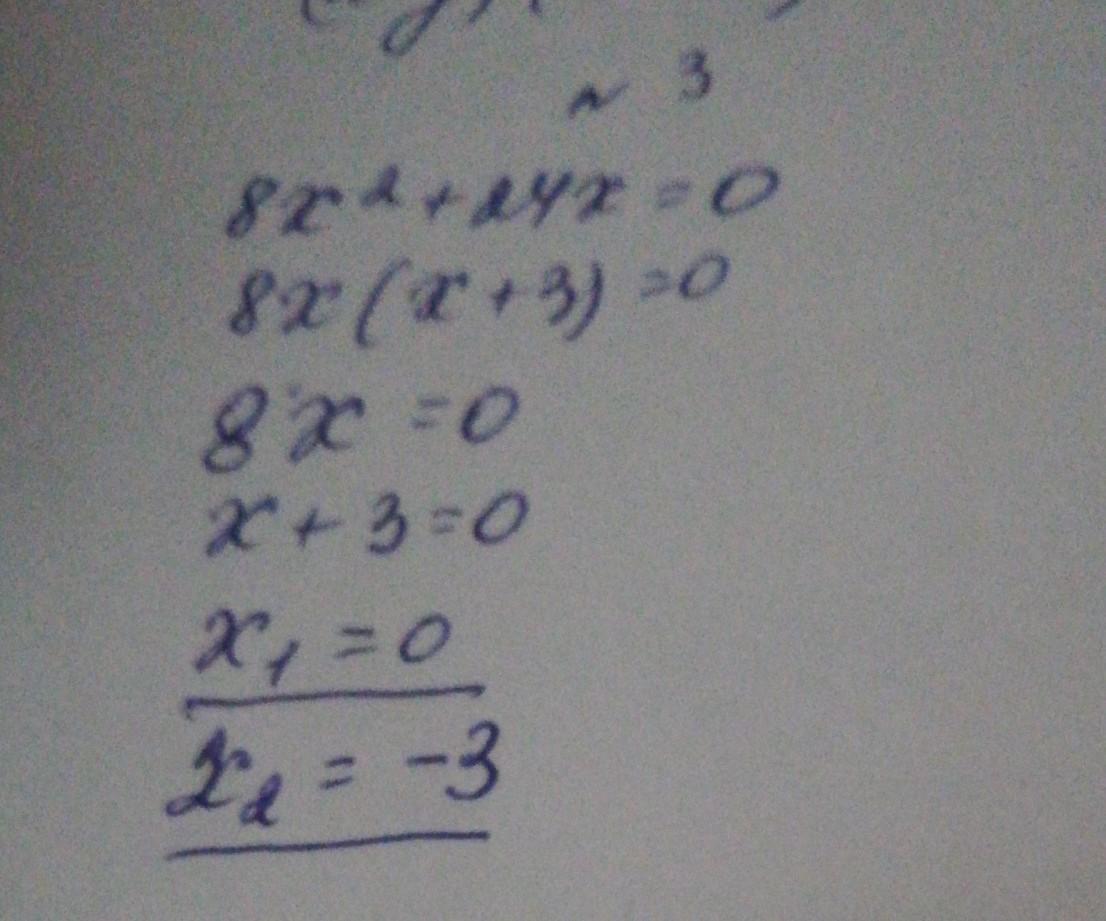 ~ 3
8x² + 24x = 0
8x(x + 3) = 0
8x = 0
x + 3 = 0
x₁ = 0
x₂ = -3